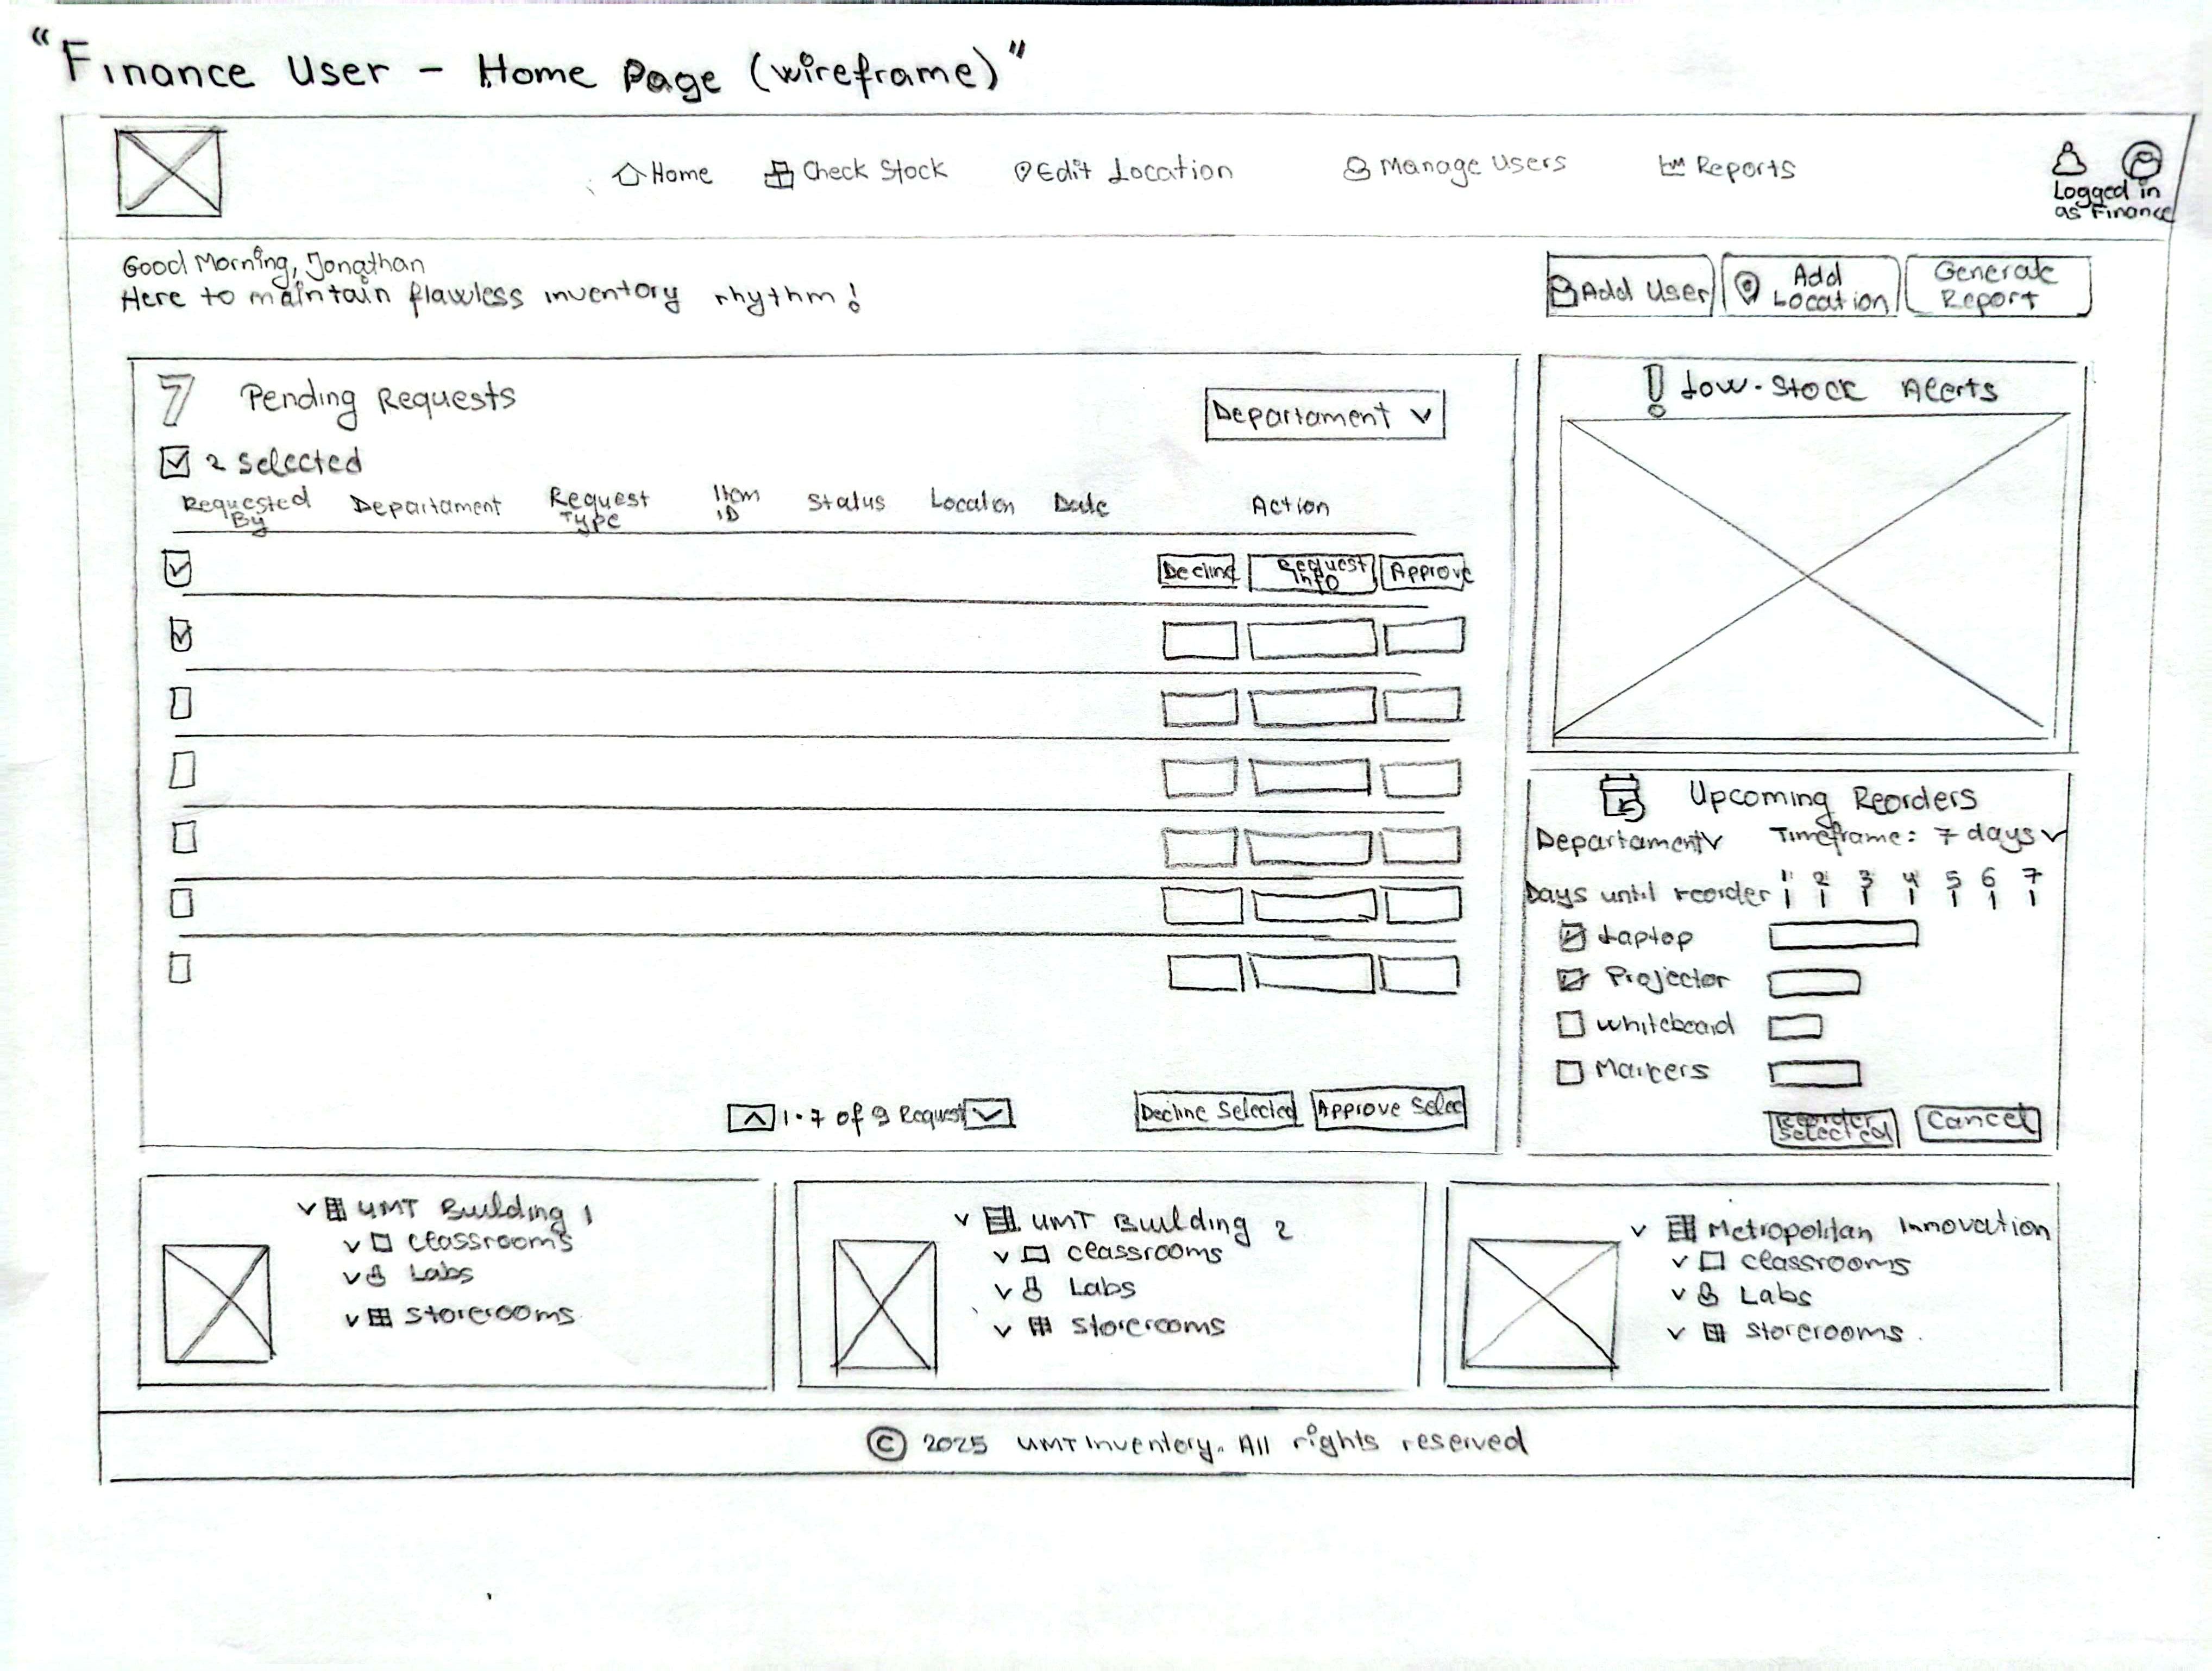 "Finance User - Home Page (wireframe)"
Home Check Stock Edit Location Manage Users Reports
Logged in
as Finance
Good Morning, Jonathan
Here to maintain flawless inventory rhythm!
Add User
Add
Location
Generate
Report
7 Pending Requests
Departament
2 selected
Requested
By
Departament
Request
Type
Item
ID
Status
Location
Date
Action
Decline
Request
Info
Approve
1-7 of 9 Request
Decline Selected
Approve Selec
! Low-Stock Alerts
Upcoming Reorders
Departament Timeframe: 7 days
Days until reorder 1 2 3 4 5 6 7
Laptop
Projector
Whiteboard
Markers
Reorder
Selected
Cancel
UMT Building 1
Classrooms
Labs
Storerooms
UMT Building 2
Classrooms
Labs
Storerooms
Metropolitan Innovation
Classrooms
Labs
Storerooms
© 2025 UMT Inventory. All rights reserved